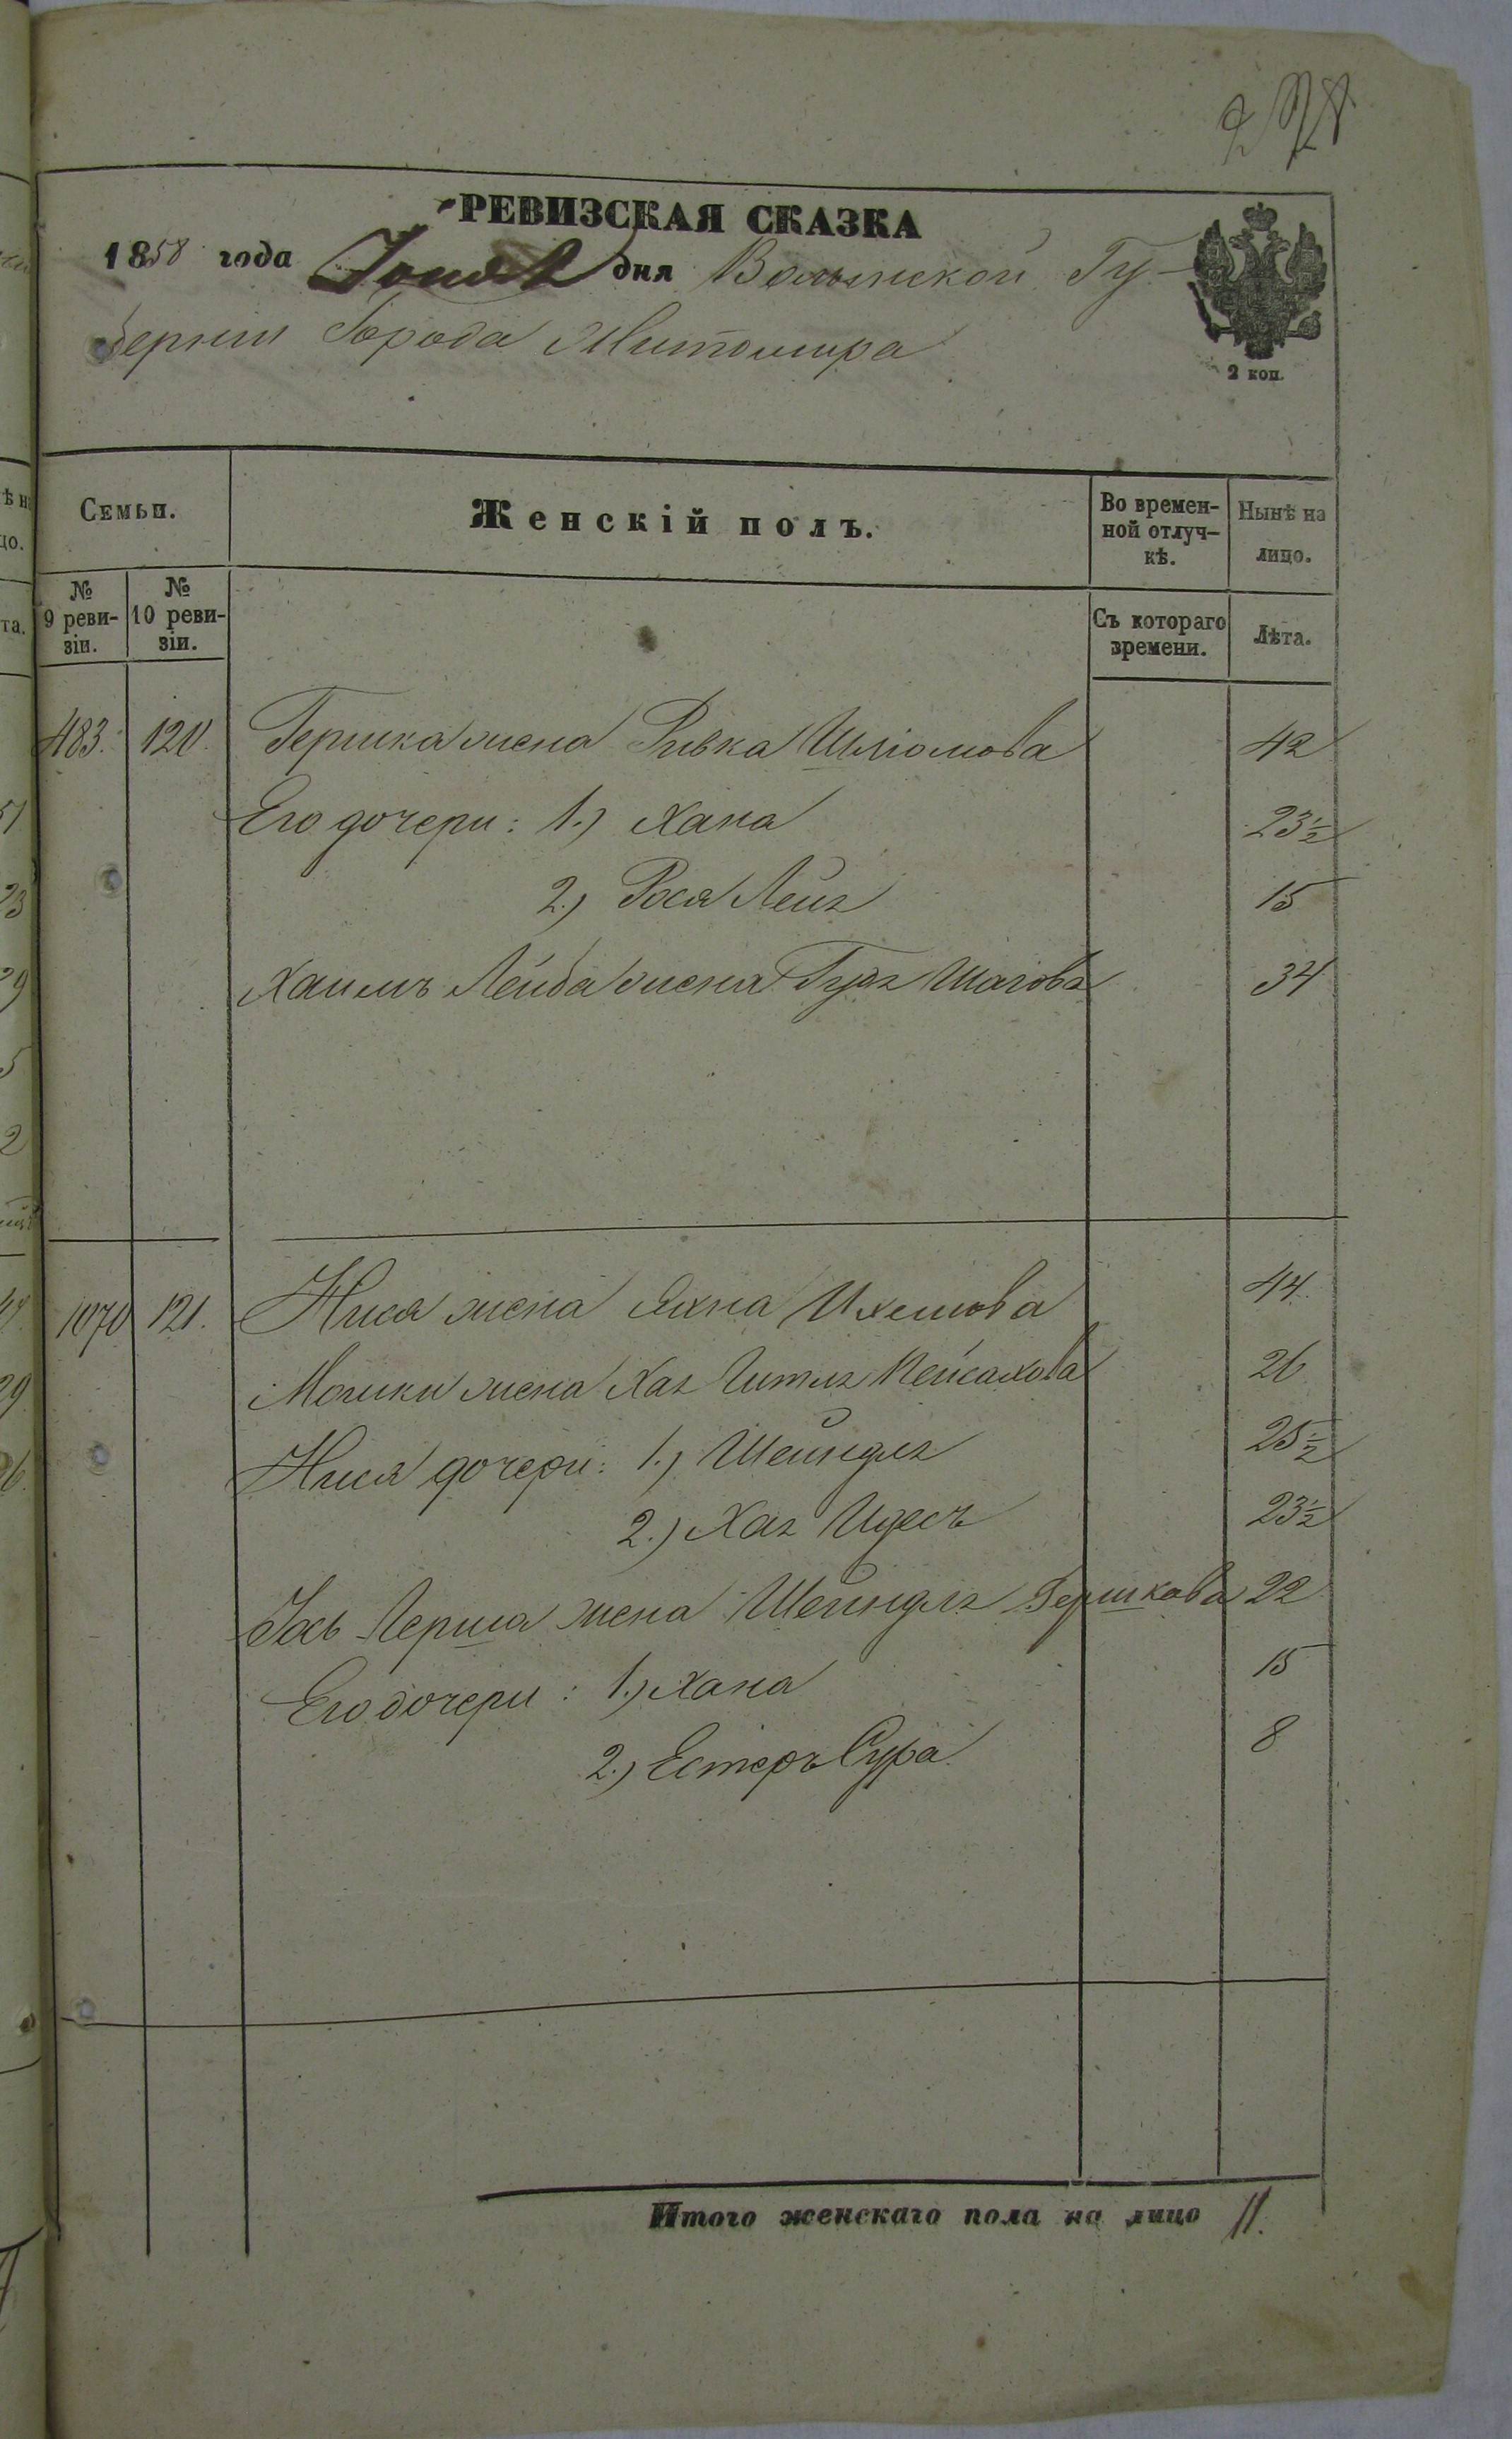 РЕВИЗСКАЯ СКАЗКА
1858 года Іюня дня Волынской Гу-
берніи Города Житомира
2 коп.
Семьи.
Женскій полъ.
Во времен-
ной отлуч-
кѣ.
Нынѣ на
лицо.
№
9 реви-
зіи.
№
10 реви-
зіи.
Съ котораго
времени.
Лѣта.
483. 120. Гершка жена Ривка Шліомова 42
Его дочери: 1.) Хана 23½
2.) Рося Лея 15
Хаимъ Лейба жена 34
1070 121. Нися жена Яхна 44.
Мошки жена Хая Гитля Пейсахова 26
Нися дочери: 1.) Шейндля 25½
2.) Хая Идесъ 23½
Іось Герша жена Шейндля Гершкова 22
Его дочери: 1.) Хана 15
2.) Естеръ Сура 8
Итого женскаго пола на лицо 11.